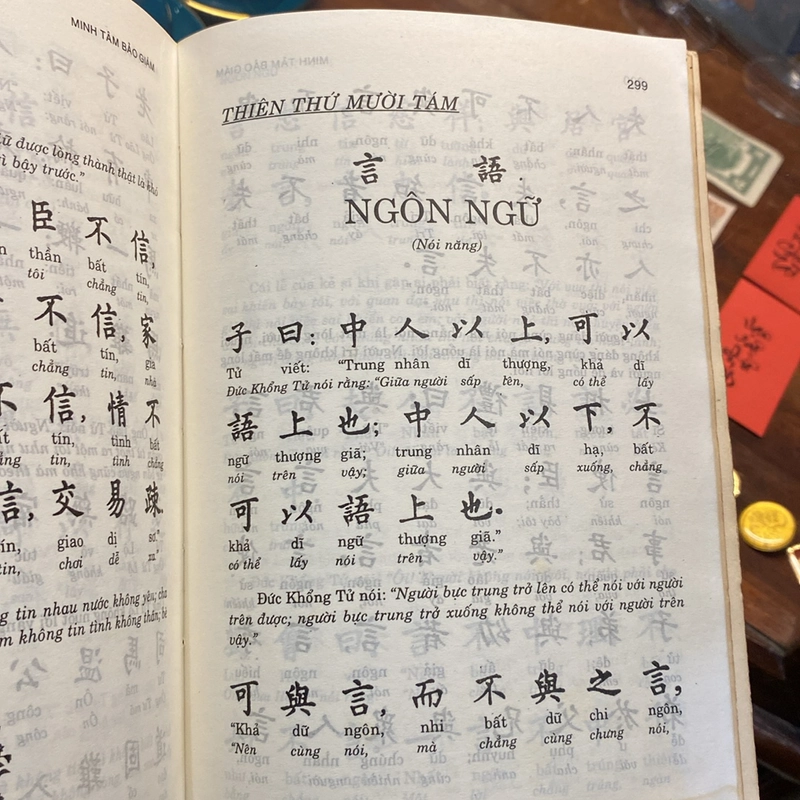 MINH TÂM BẢO GIÁM
ữ được lòng thành thật là khó
ì bậy trước."
臣 不 信,
thần bất tín,
tôi chẳng tin,
不 信, 家
bất tín, gia
chẳng tin, nhà
不 信, 情 不
tín, tình bất
tin, tình chẳng
言, 交 易 疎
tín, giao dị sơ."
tin, chơi dễ xa."
g tin nhau nước không yên; cha
m không tin tình không thân; bè
公 温 馬 司
難 固
299
THIÊN THỨ MƯỜI TÁM
言 語
NGÔN NGỮ
(Nói năng)
子 曰: 中 人 以 上, 可 以
Tử viết: "Trung nhân dĩ thượng, khả dĩ
Đức Khổng Tử nói rằng: "Giữa người sấp lên, có thể lấy
語 上 也; 中 人 以 下, 不
ngữ thượng giã; trung nhân dĩ hạ, bất
nói trên vậy; giữa người sấp xuống, chẳng
可 以 語 上 也.
khả dĩ ngữ thượng giã."
có thể lấy nói trên vậy."
Đức Khổng Tử nói: "Người bực trung trở lên có thể nói với người
trên được; người bực trung trở xuống không thể nói với người trên
vậy."
可 與 言, 而 不 與 之 言,
"Khả dữ ngôn, nhi bất dữ chi ngôn,
"Nên cùng nói, mà chẳng cùng chưng nói,